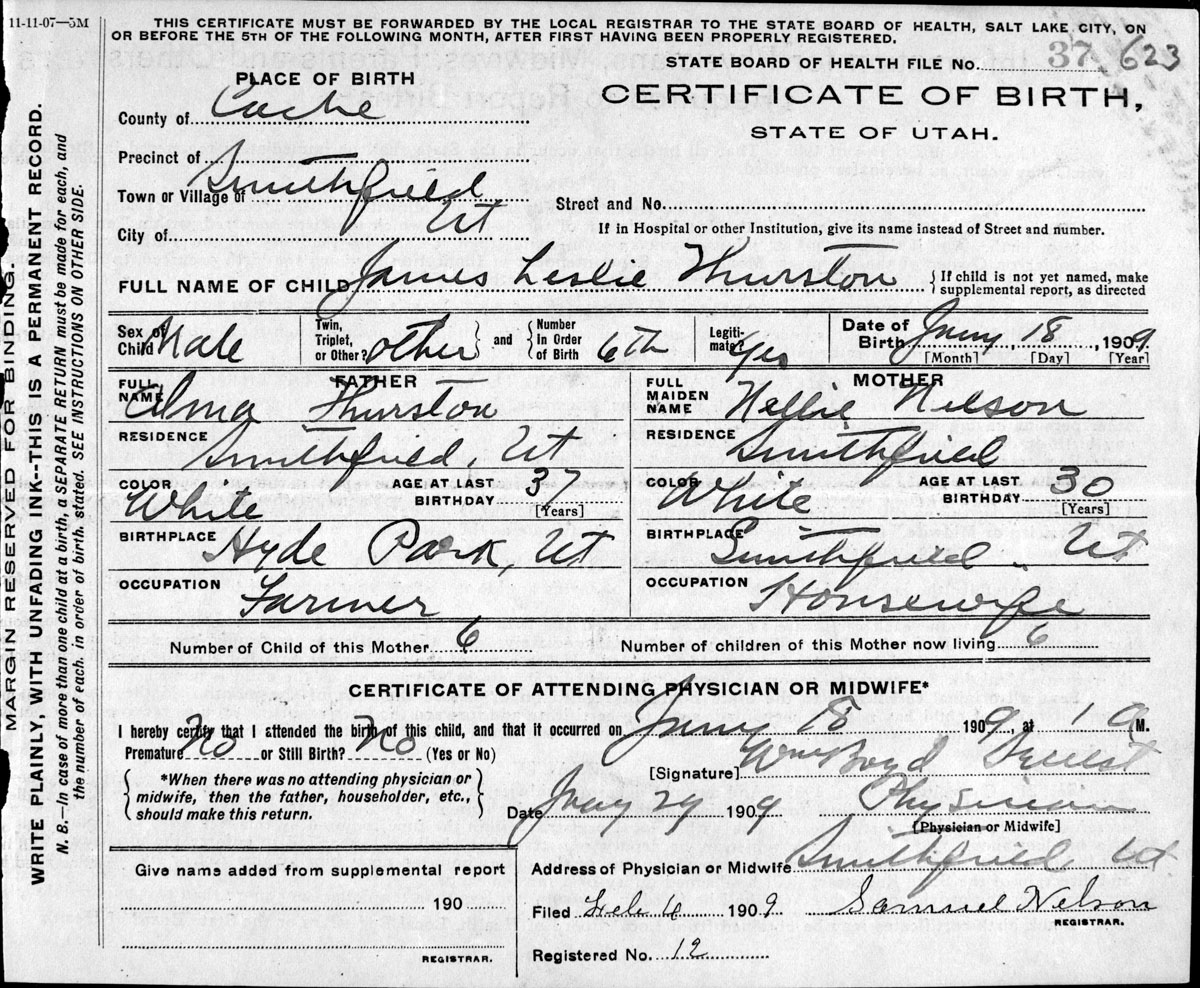 11-11-07—5M
THIS CERTIFICATE MUST BE FORWARDED BY THE LOCAL REGISTRAR TO THE STATE BOARD OF HEALTH, SALT LAKE CITY, ON
OR BEFORE THE 5TH OF THE FOLLOWING MONTH, AFTER FIRST HAVING BEEN PROPERLY REGISTERED.
STATE BOARD OF HEALTH FILE No. 37-623
PLACE OF BIRTH
CERTIFICATE OF BIRTH,
STATE OF UTAH.
County of Cache
Precinct of
Town or Village of Smithfield
Street and No.
City of Ut
If in Hospital or other Institution, give its name instead of Street and number.
FULL NAME OF CHILD James Leslie Thurston
{If child is not yet named, make
supplemental report, as directed
Sex of Child Male
Twin, Triplet, or Other? other
and
Number In Order of Birth 6th
Legitimate? Yes
Date of Birth Jany 18 1909
[Month] [Day] [Year]
FATHER
FULL NAME Alma Thurston
RESIDENCE Smithfield, Ut
COLOR White
AGE AT LAST BIRTHDAY 37
[Years]
BIRTHPLACE Hyde Park, Ut
OCCUPATION Farmer
MOTHER
FULL MAIDEN NAME Nellie Nelson
RESIDENCE Smithfield
COLOR White
AGE AT LAST BIRTHDAY 30
[Years]
BIRTHPLACE Smithfield Ut
OCCUPATION Housewife
Number of Child of this Mother 6
Number of children of this Mother now living 6
CERTIFICATE OF ATTENDING PHYSICIAN OR MIDWIFE*
I hereby certify that I attended the birth of this child, and that it occurred on Jany 18 1909, at 1 a M.
Premature No or Still Birth? No (Yes or No)
*When there was no attending physician or
midwife, then the father, householder, etc.,
should make this return.
[Signature] Wm Boyd
Date Jany 29 1909 Physician
[Physician or Midwife]
Give name added from supplemental report
190
REGISTRAR.
Address of Physician or Midwife Smithfield, Ut
Filed Feb 1909 Samuel Nelson
REGISTRAR.
Registered No. 12
MARGIN RESERVED FOR BINDING.
WRITE PLAINLY, WITH UNFADING INK--THIS IS A PERMANENT RECORD.
N. B.—In case of more than one child at a birth, a SEPARATE RETURN must be made for each, and
the number of each, in order of birth, stated. SEE INSTRUCTIONS ON OTHER SIDE.